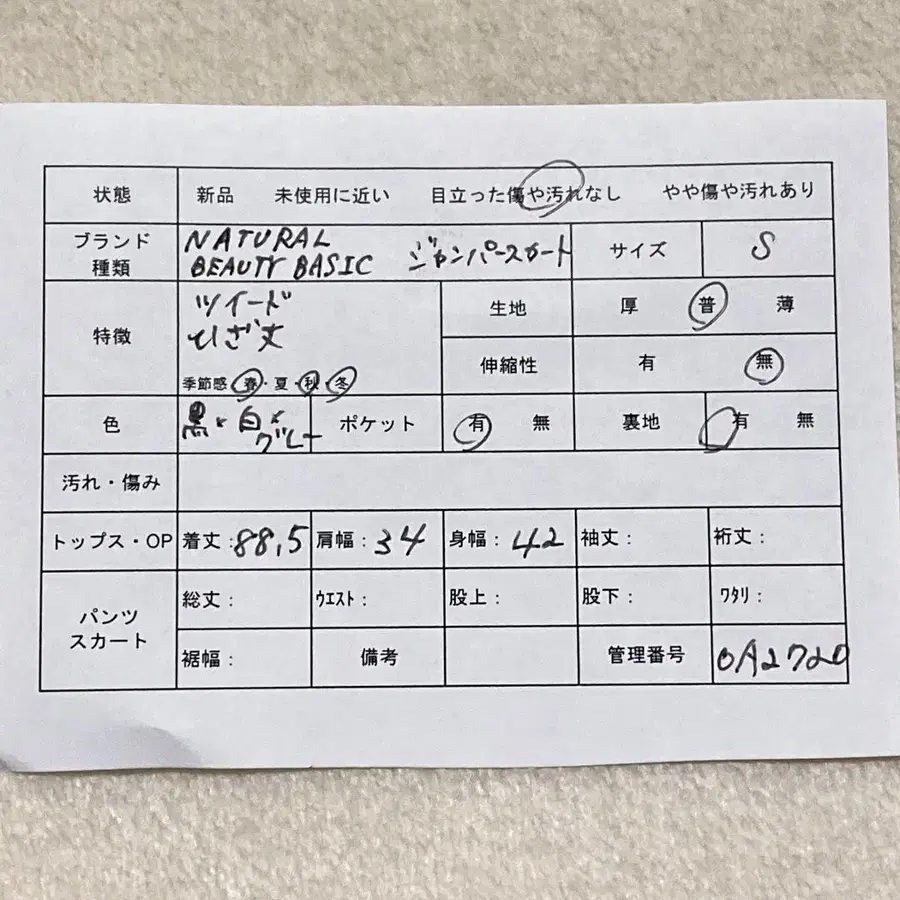 状態 新品 未使用に近い 目立った傷や汚れなし やや傷や汚れあり
ブランド種類 NATURAL BEAUTY BASIC ジャンパースカート サイズ S
特徴 ツイード
ひざ丈
季節感 春・夏・秋・冬
生地 厚 普 薄
伸縮性 有 無
色 黒×白×グレー ポケット 有 無 裏地 有 無
汚れ・傷み
トップス・OP 着丈:88.5 肩幅:34 身幅:42 袖丈: 裄丈:
パンツ
スカート
総丈: ウエスト: 股上: 股下: ワタリ:
裾幅: 備考 管理番号 0A2720